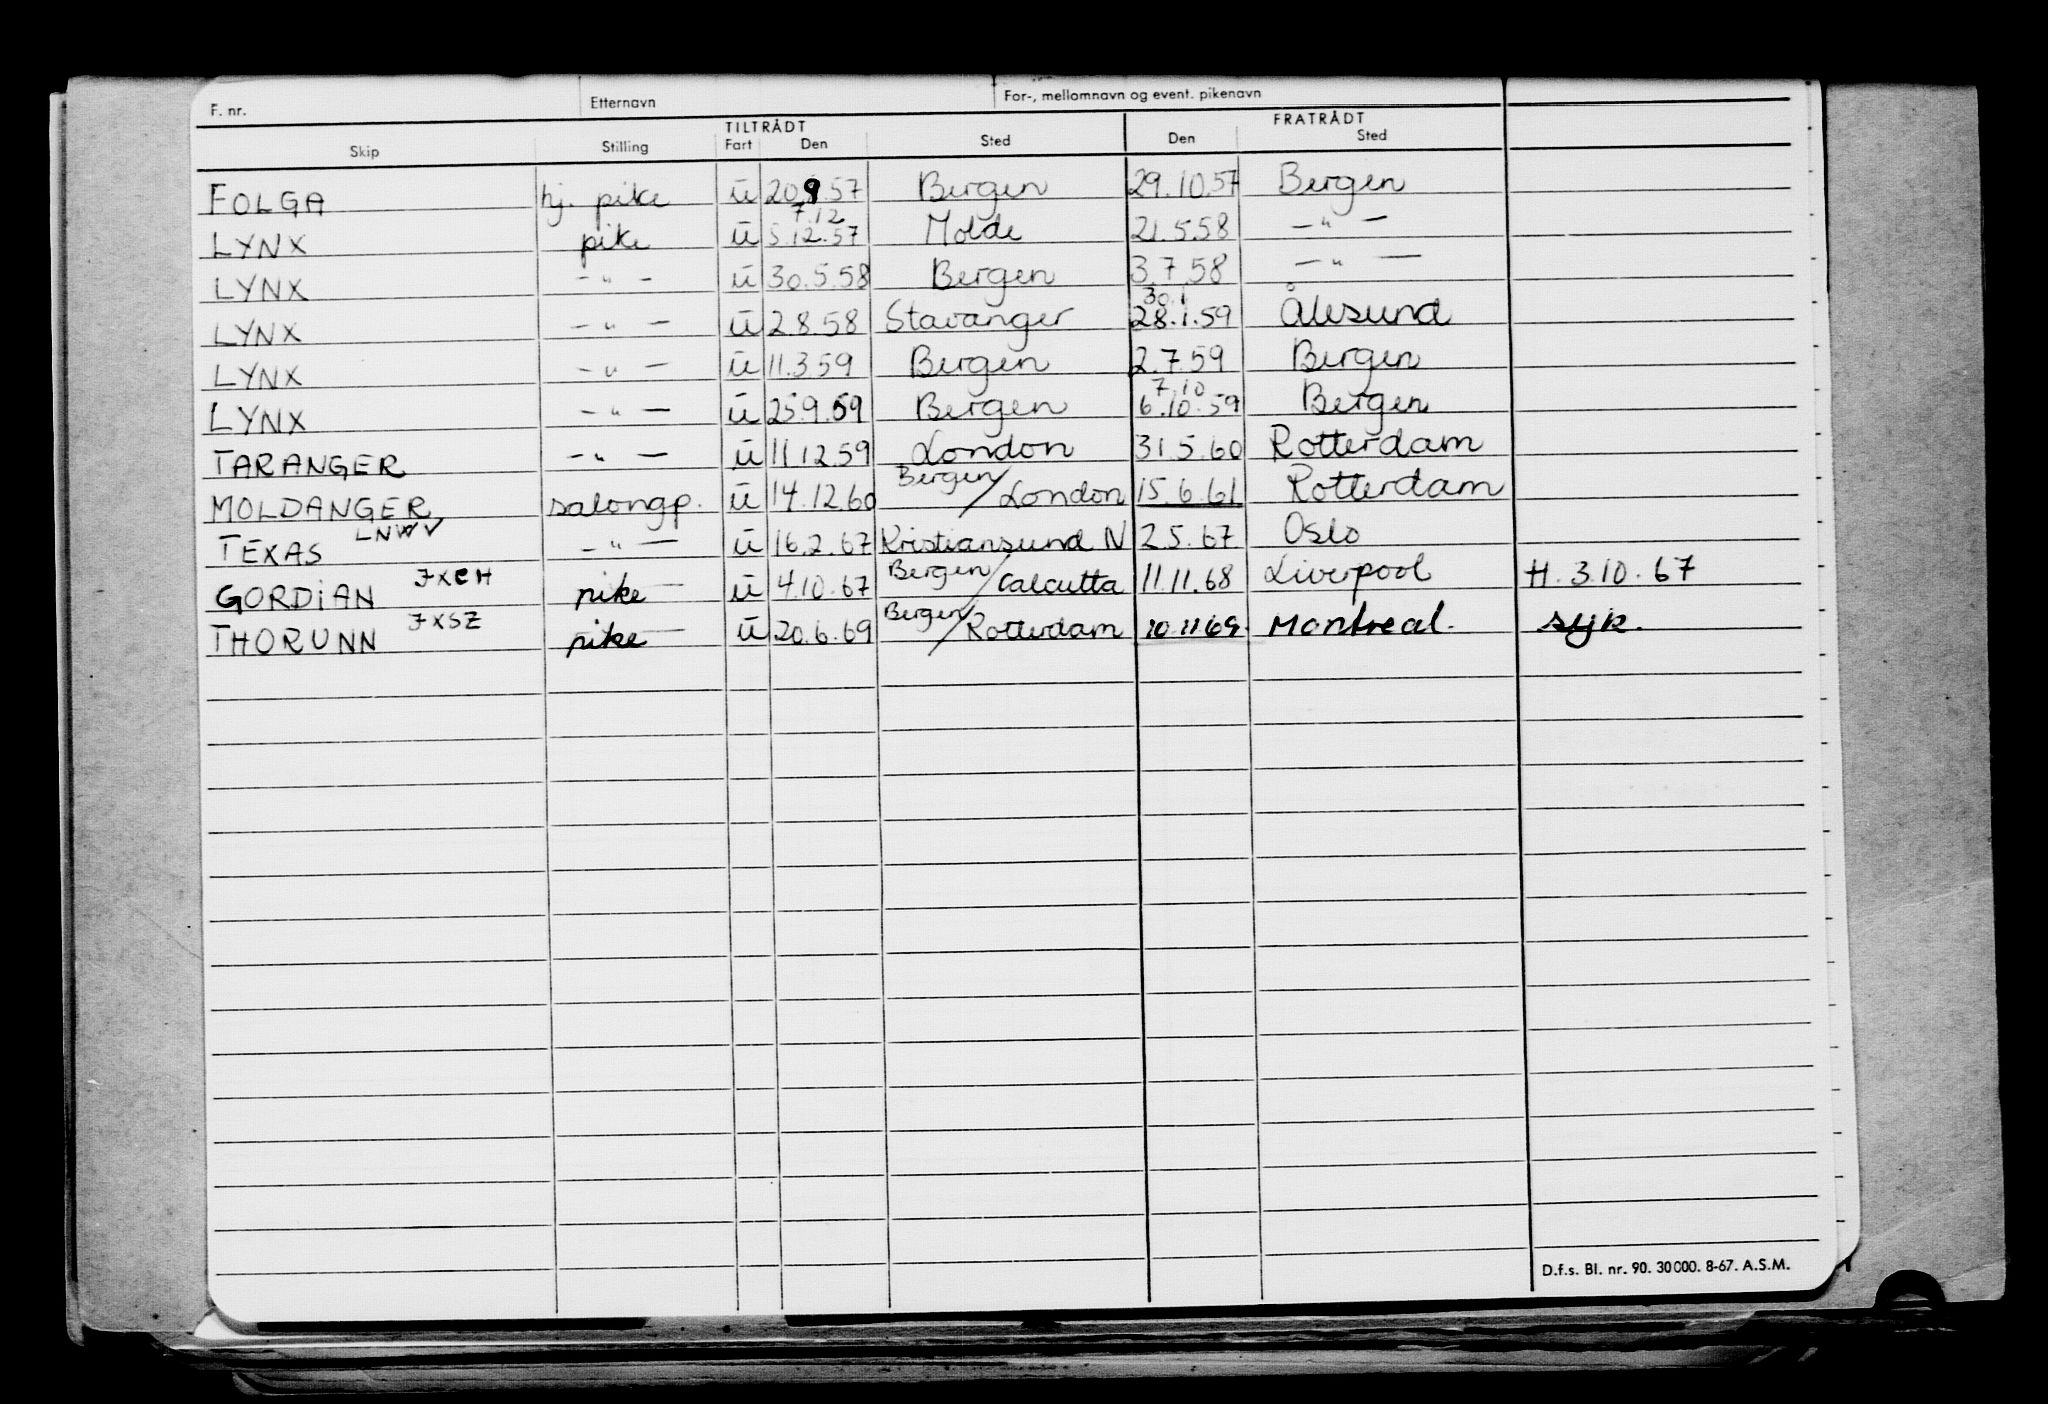 F. nr. Etternavn For-, mellomnavn og event. pikenavn
TILTRÅDT FRATRÅDT
Skip Stilling Fart Den Sted Den Sted
FOLGA hj. pike u 20.9.57 Bergen 29.10.57 Bergen
7.12
LYNX pike u 5.12.57 Molde 21.5.58 — " —
LYNX — " — u 30.5.58 Bergen 3.7.58 — " —
30.1
LYNX — " — u 2.8.58 Stavanger 28.1.59 Ålesund
LYNX — " — u 11.3.59 Bergen 2.7.59 Bergen
7.10
LYNX — " — u 25.9.59 Bergen 6.10.59 Bergen
TARANGER — " — u 11.12.59 London 31.5.60 Rotterdam
MOLDANGER salongp. u 14.12.60 Bergen/London 15.6.61 Rotterdam
TEXAS LNWV — " — u 16.2.67 Kristiansund N 2.5.67 Oslo
GORDIAN JXCH pike u 4.10.67 Bergen/Calcutta 11.11.68 Liverpool H. 3.10.67
THORUNN JXSZ pike u 20.6.69 Bergen/Rotterdam 10.11.69 Montreal. syk.
D.f.s. Bl. nr. 90. 30000. 8-67. A.S.M.